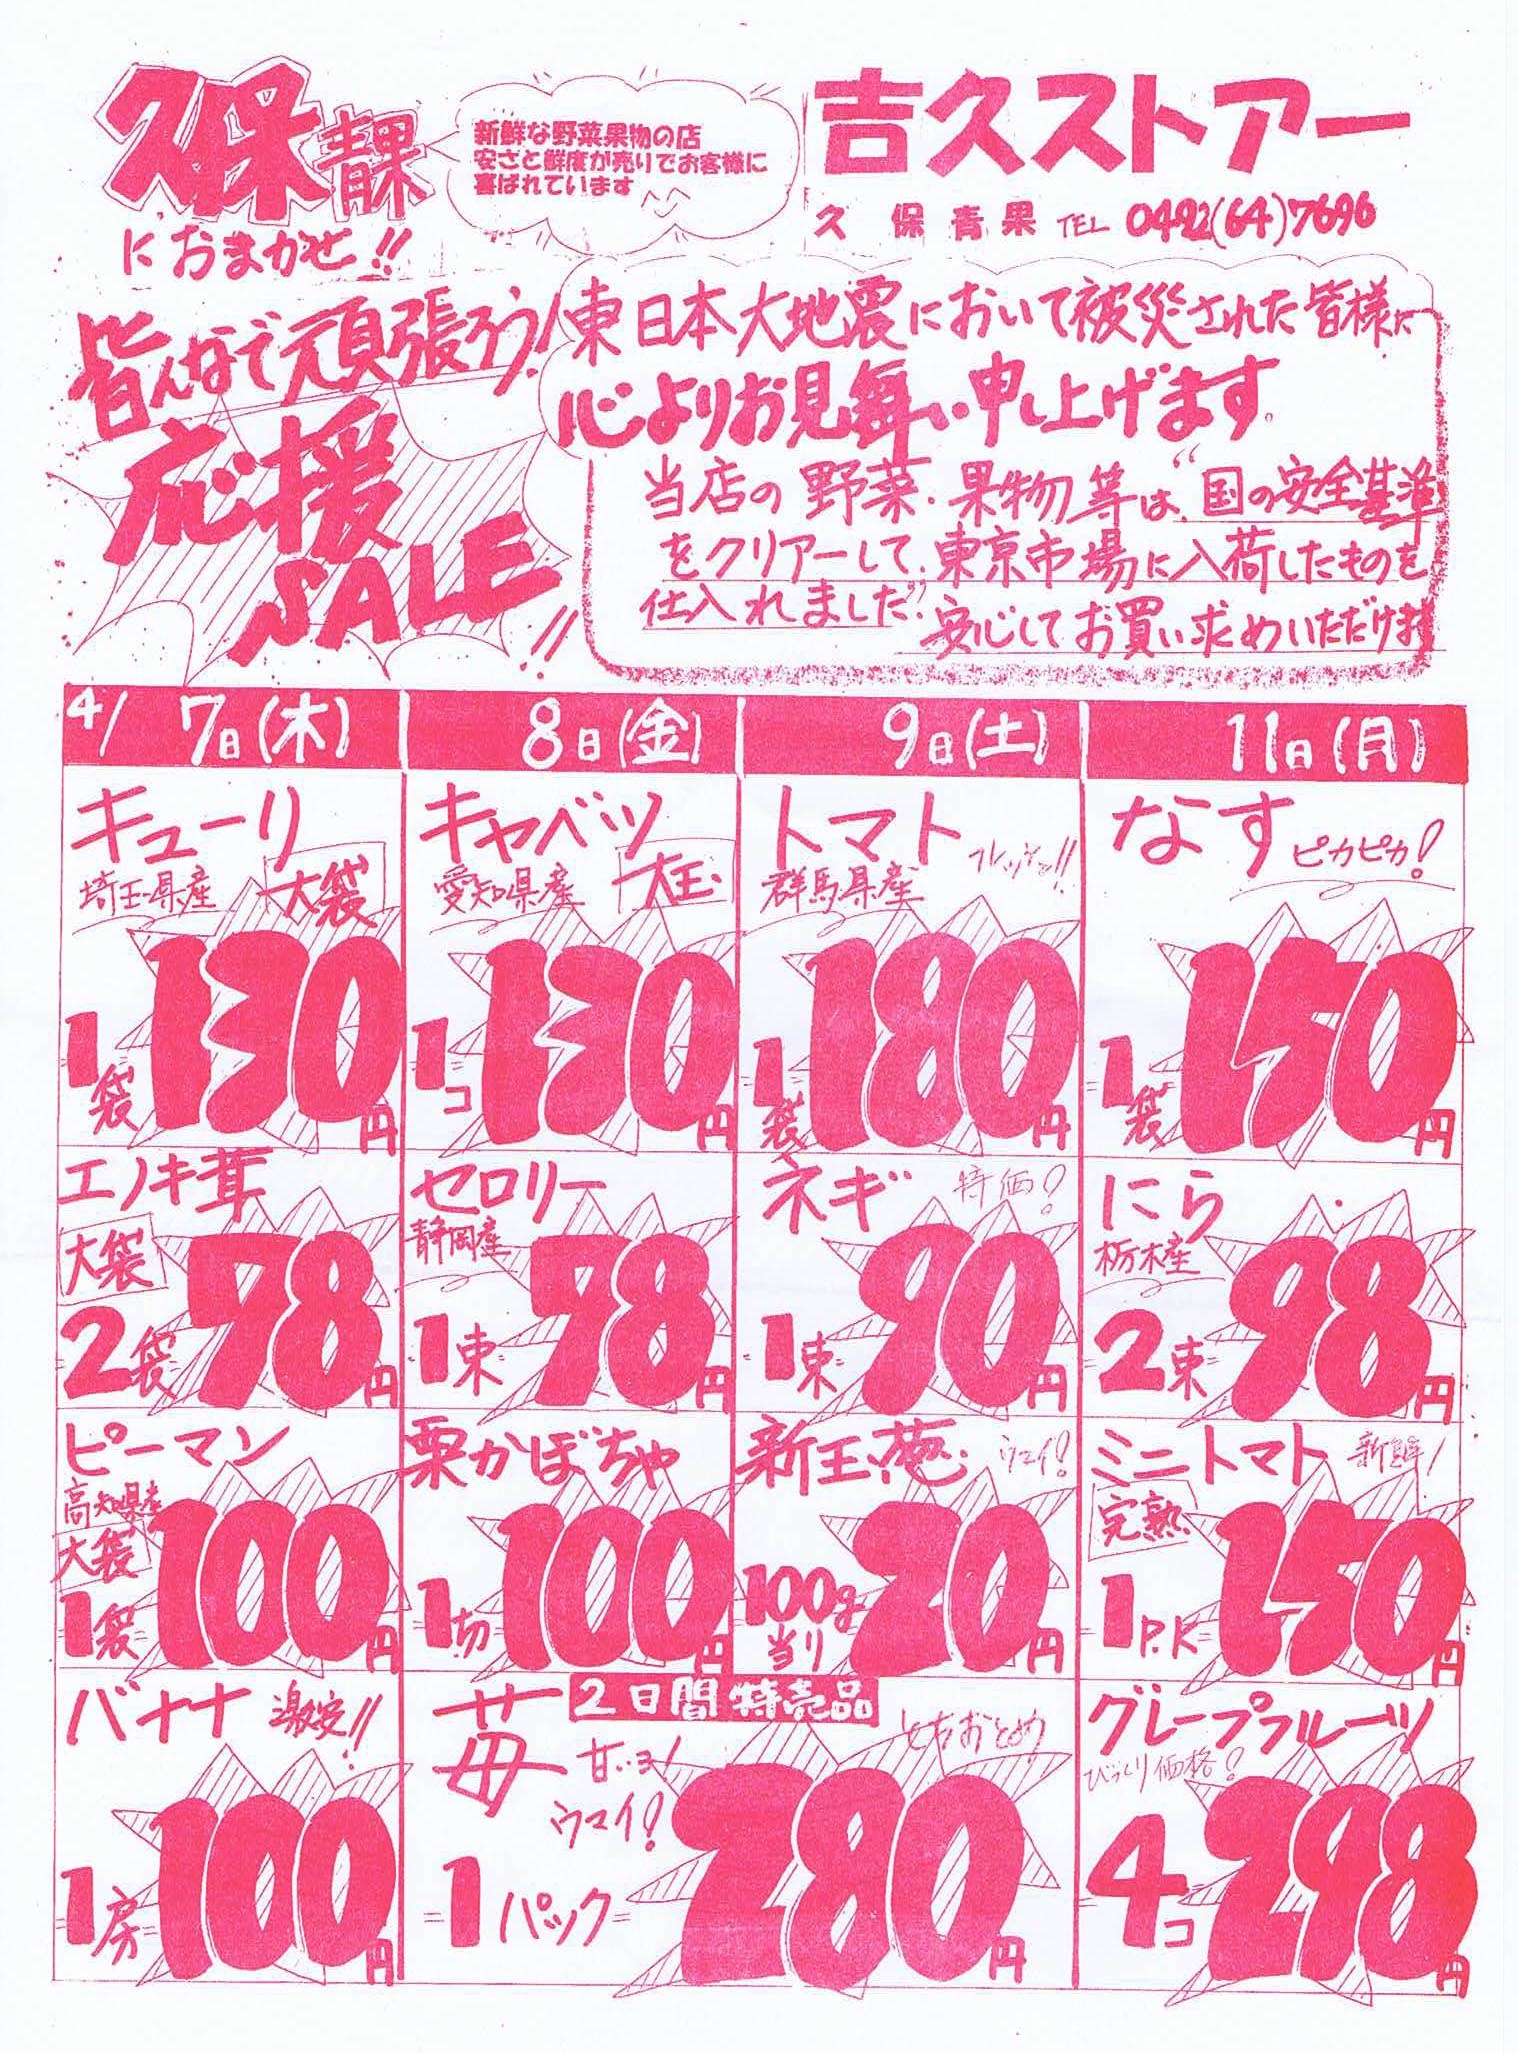 久保青果
におまかせ!!
新鮮な野菜果物の店
安さと鮮度が売りでお客様に
喜ばれています
吉久ストアー
久保青果 TEL 0492(64)7696
皆んなで頑張ろう!
応援
SALE!!
東日本大地震において被災された皆様に
心よりお見舞い申し上げます。
当店の野菜・果物等は、“国の安全基準
をクリアーして、東京市場に入荷したものを
仕入れました”
安心してお買い求めいただけます
4/7日(木)
8日(金)
9日(土)
11日(月)
キューリ
埼玉県産
大袋
1袋 130円
キャベツ
愛知県産
大玉
1コ 130円
トマト
群馬県産
フレッシュ!!
1袋 180円
なす
ピカピカ!
1袋 150円
エノキ茸
大袋
2袋 98円
セロリー
静岡産
1束 98円
ネギ
特価!
1束 90円
にら
栃木産
2束 98円
ピーマン
高知県産
大袋
1袋 100円
栗かぼちゃ
1切 100円
新玉葱
ウマイ!
100g当り 20円
ミニトマト
新鮮!
完熟
1P.K 150円
バナナ
激安!!
1房 100円
2日間特売品
苺
甘いヨ!
ウマイ!
とちおとめ
1パック 280円
グレープフルーツ
びっくり価格!
4コ 298円